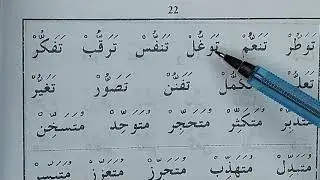 22
تَوَطُّرْ تَنَعُّمْ تَوَغُّلْ تَنَفُّسْ تَرَقُّبْ تَفَكُّرْ
تَكَمُّلْ تَفَنُّنْ تَصَوُّرْ تَغَيُّرْ
مُتَدَبِّرْ مُتَكَثِّرْ مُتَحَجِّرْ مُتَوَحِّدْ مُتَسَخِّنْ
مُتَبَدِّلْ مُتَهَذِّبْ مُتَحَرِّزْ مُتَعَزِّزْ مُتَيَسِّرْ